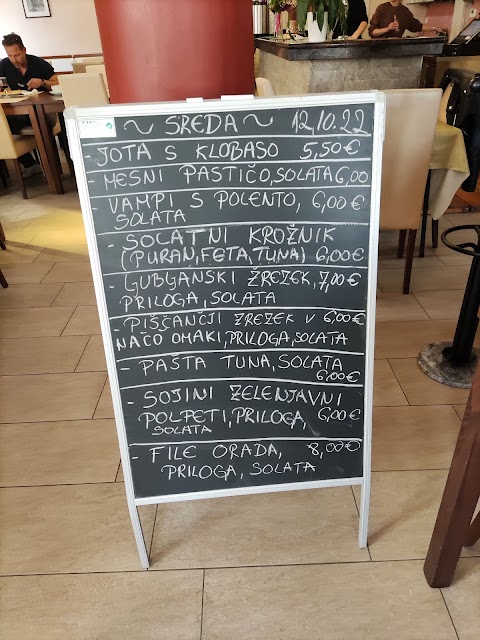 ~ SREDA ~ 12.10.22
- JOTA S KLOBASO 5,50€
- MESNI PASTIČO, SOLATA 6,00
VAMPI S POLENTO, 6,00€
SOLATA
- SOLATNI KROŽNIK
(PURAN, FETA, TUNA) 6,00€
- LJUBLJANSKI ŽREZEK, 7,00€
PRILOGA, SOLATA
- PIŠČANČJI ZREZEK V 6,00€
NAČO OMAKI, PRILOGA, SOLATA
- PAŠTA TUNA, SOLATA
6,00€
- SOJINI ZELENJAVNI
POLPETI, PRILOGA, 6,00€
SOLATA
- FILE ORADA, 8,00€
PRILOGA, SOLATA